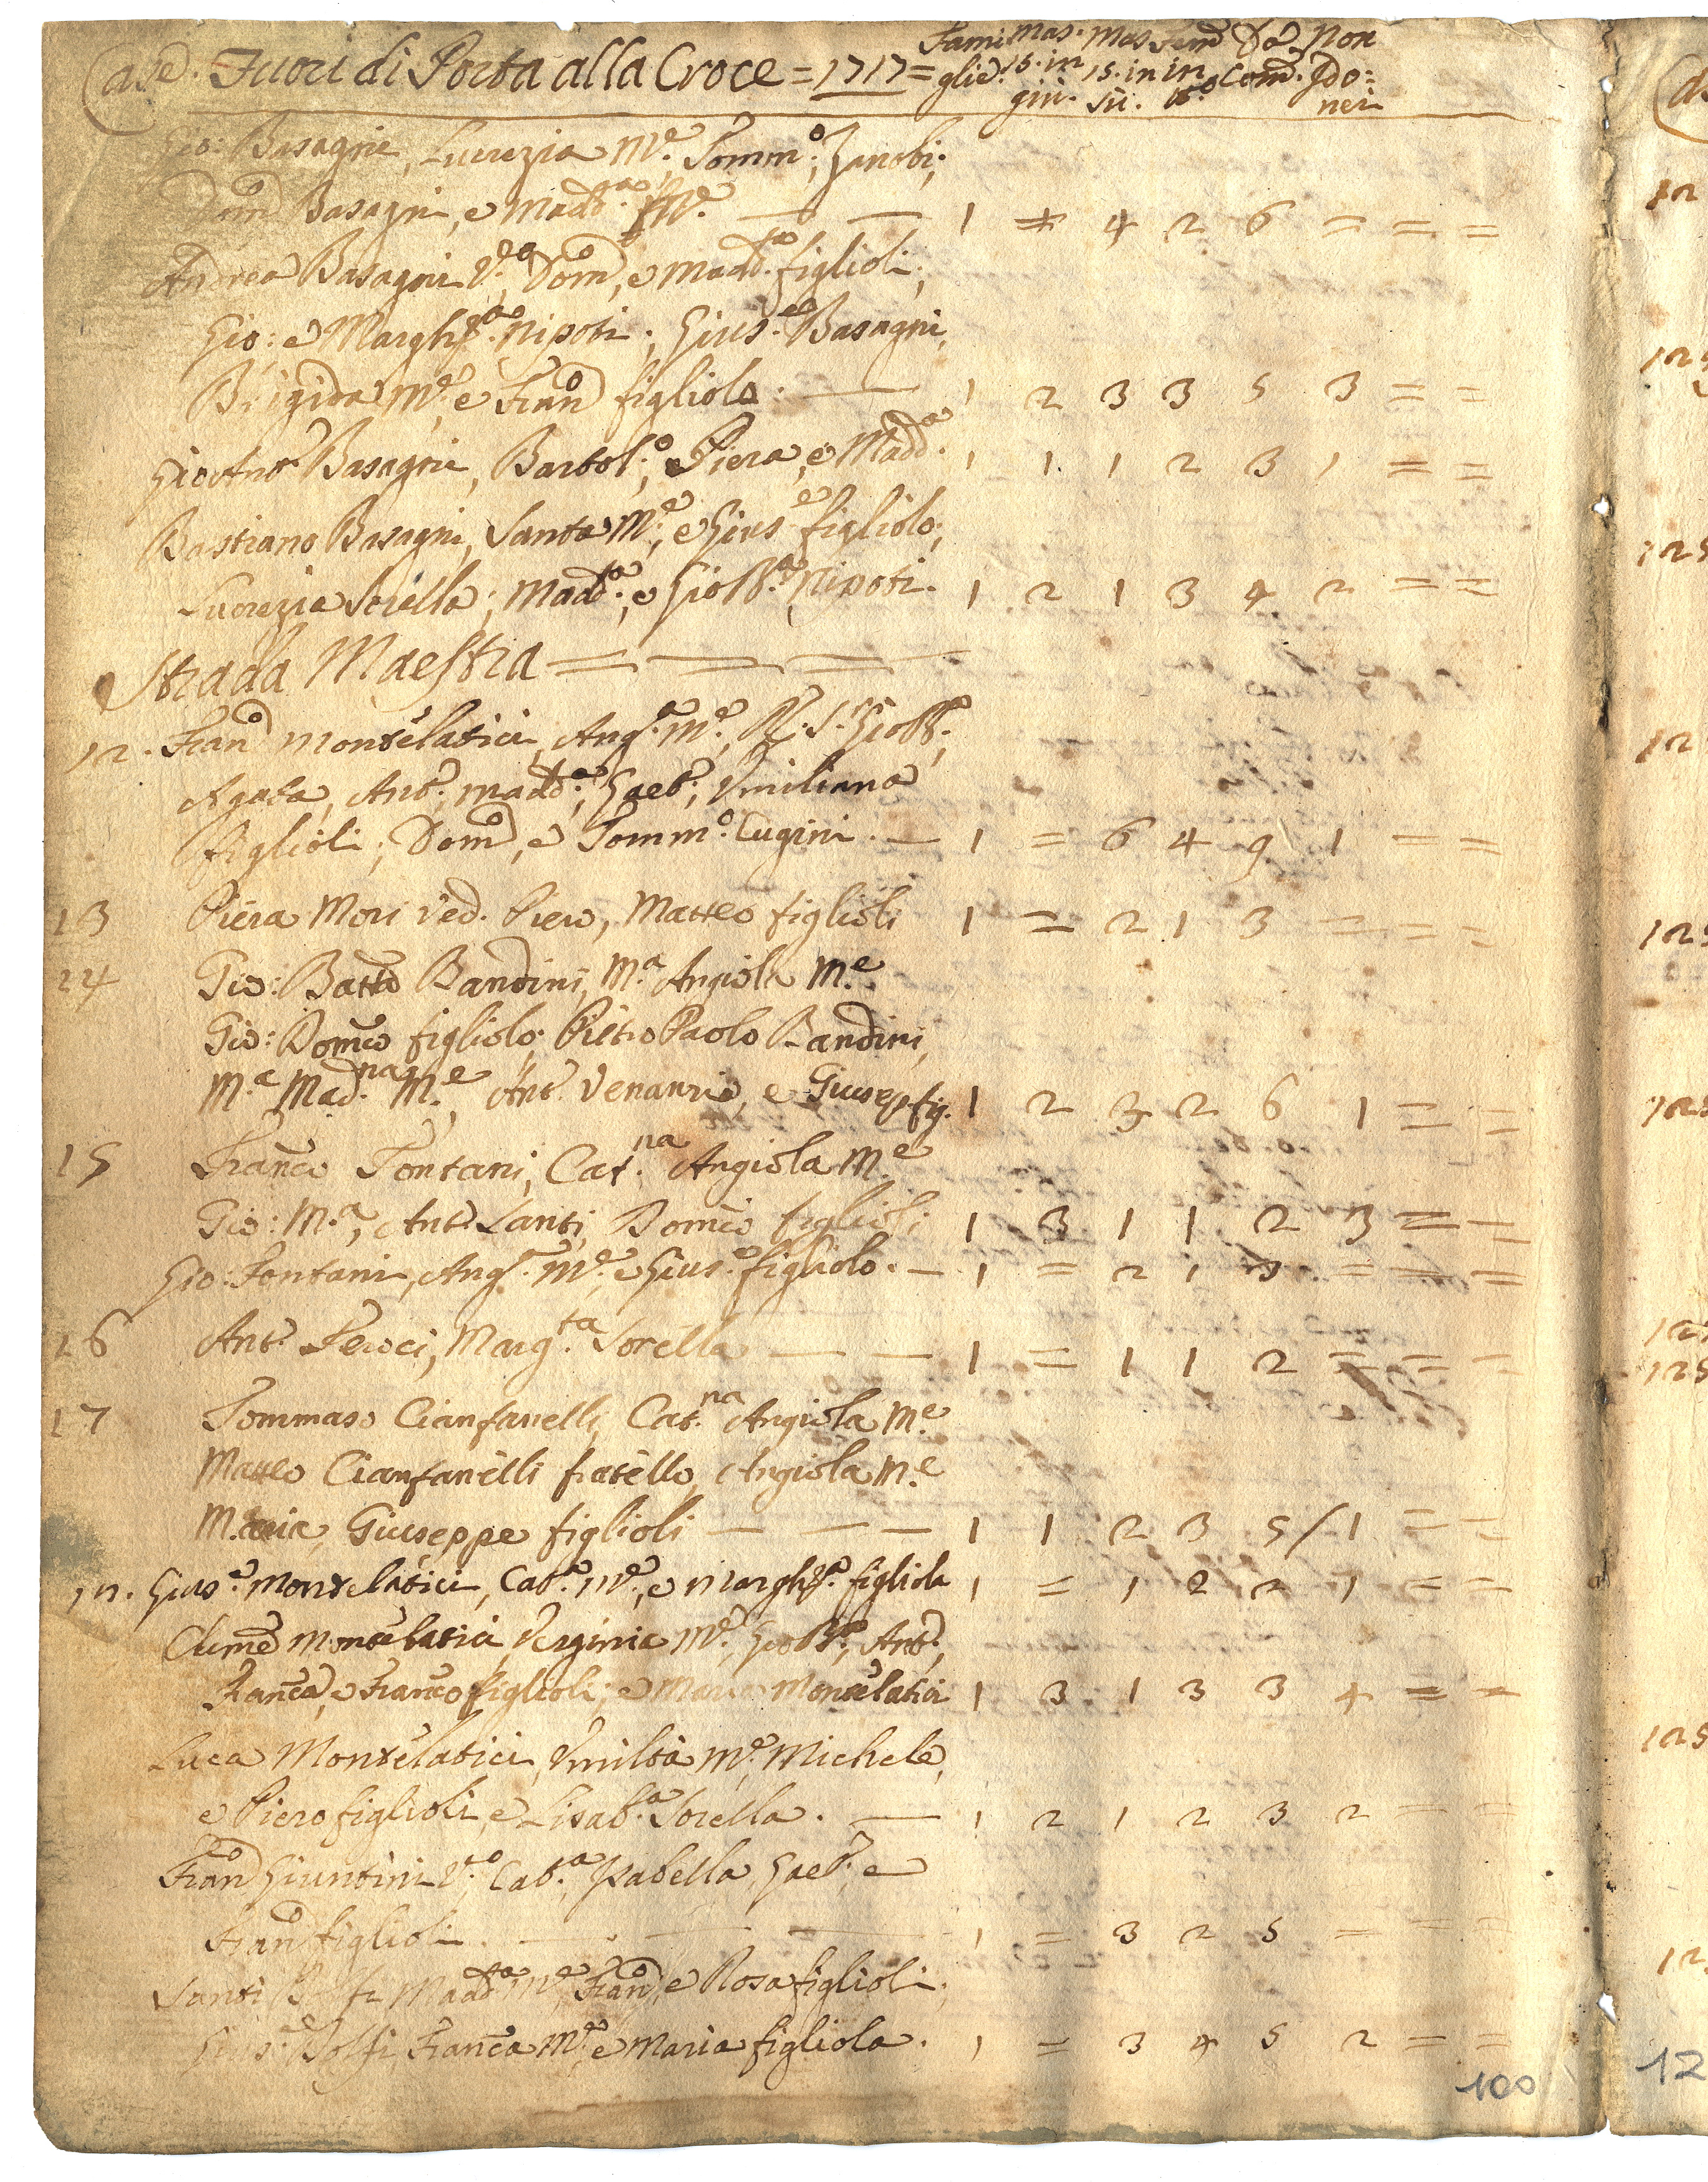 Case. Fuori di Porta alla Croce = 1717 = Fami Mas. Mas Fem Da Non
glie. 15. in 15. in in Com. Ido:
giu. Sù. nei
Gio: Basagni, Lucrezia M.e Tomm.o; Zanobi;
Dom.o Basagni, e Madd.a M.e — — 1 = 4 2 6 = = =
Andrea Basagni V.o, Dom.o, e Madd.a figlioli;
Gio: e Margh.ta Nipoti; Gius.e Basagni,
Brigida M.e e Fran.o figliolo. — 1 2 3 3 5 3 = =
Gio Ant.o Basagni, Bartol.o; Piera, e Madd.a 1 1 1 2 3 1 = =
Bastiano Basagni, Santa M.e, e Gius.e figliolo;
Lucrezia Sorella; Madd.a; e Gio B.a Nipoti. 1 2 1 3 4 2 = =
Strada Maestra = = =
12. Fran.o Montelatici, Ang.a M.e, Gio B.a;
Agata, Ant.o; Madd.a; Gaet.o; Vmiliana
figlioli; Dom.o, e Tomm.o Cugini. — 1 = 6 4 9 1 = =
13 Piera Mori ved. Piero, Matteo figlioli 1 = 2 1 3 = = =
14 Gio: Batta Bandini, M.a Angiola M.e
Gio: Dom.co figliolo; Pietro Paolo Bandini,
M.a Mad.na M.e, Ant.o Venanzio, e Giusep. fig. 1 2 3 2 6 1 = =
15 Franc.o Fontani, Cat.na Angiola M.e
Gio: M.a, Ant.o Santi, Dom.co figlioli 1 3 1 1 2 3 = =
Gio: Fontani, Ang.a M.e e Gius.e figliolo. — 1 = 2 1 3 = = =
16 Ant.o Peroci, Marg.ta Sorella — — 1 = 1 1 2 = = =
17 Tommaso Cianfanelli, Cat.na Angiola M.e
Matteo Cianfanelli fratello, Angiola M.e
Maria, Giuseppe figlioli — — — 1 1 2 3 5 / 1 = =
Gius.e Montelatici, Cat.a M.e, e Margh.ta figliola 1 = 1 2 2 1 = =
Cleme Montelatici, Verginia M.e, Gio B.a, Ant.o,
Fran.ca, e Fran.co figlioli; e Montelatici 1 3 1 3 3 4 = =
Luca Montelatici, Vmiltà M.e, Michele,
e Piero figlioli, e Lisab.a Sorella. — 1 2 1 2 3 2 = =
Fran.o Giuntini V.o Cat.a, Isabella, Gaet.o; e
Fran.o figlioli. — — — 1 = 3 2 5 = = =
Santi Dolfi Madd.a M.e, Fran.o, e Rosa figlioli;
Gius.e Dolfi, Fran.ca M.e, e Maria figliola. 1 = 3 4 5 2 = =
100
12